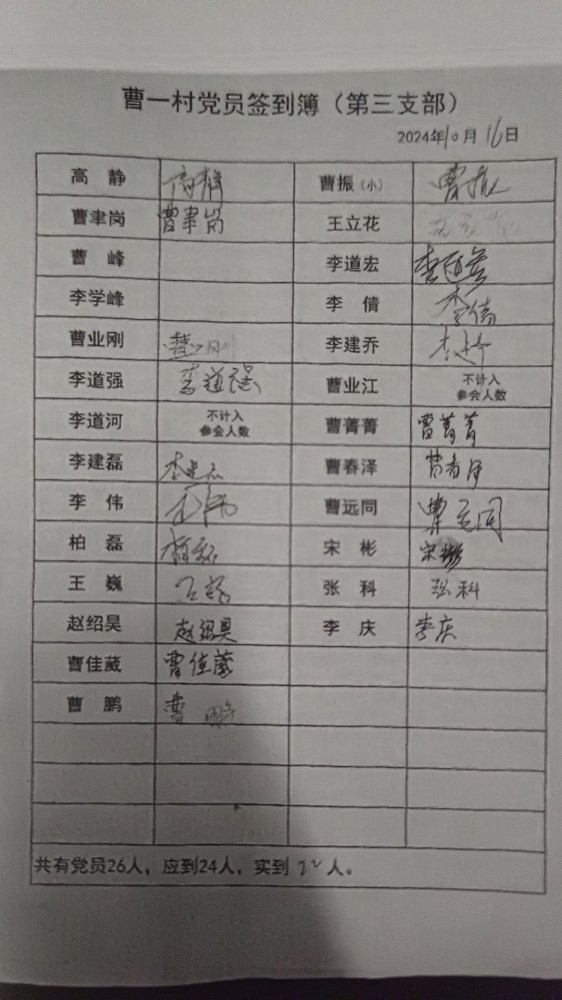 曹一村党员签到簿（第三支部）
2024年10月16日
高 静 高静 曹振（小） 曹振
曹聿岗 曹聿岗 王立花
曹 峰 李道宏 李道宏
李学峰 李 倩 李倩
曹业刚 曹业刚 李建乔 李建乔
李道强 李道强 曹业江 不计入
参会人数
李道河 不计入
参会人数 曹菁菁 曹菁菁
李建磊 李建磊 曹春泽 曹春泽
李 伟 李伟 曹远同 曹远同
柏 磊 柏磊 宋 彬 宋彬
王 巍 王巍 张 科 张科
赵绍昊 赵绍昊 李 庆 李庆
曹佳葳 曹佳葳
曹 鹏 曹鹏
共有党员26人，应到24人，实到22人。